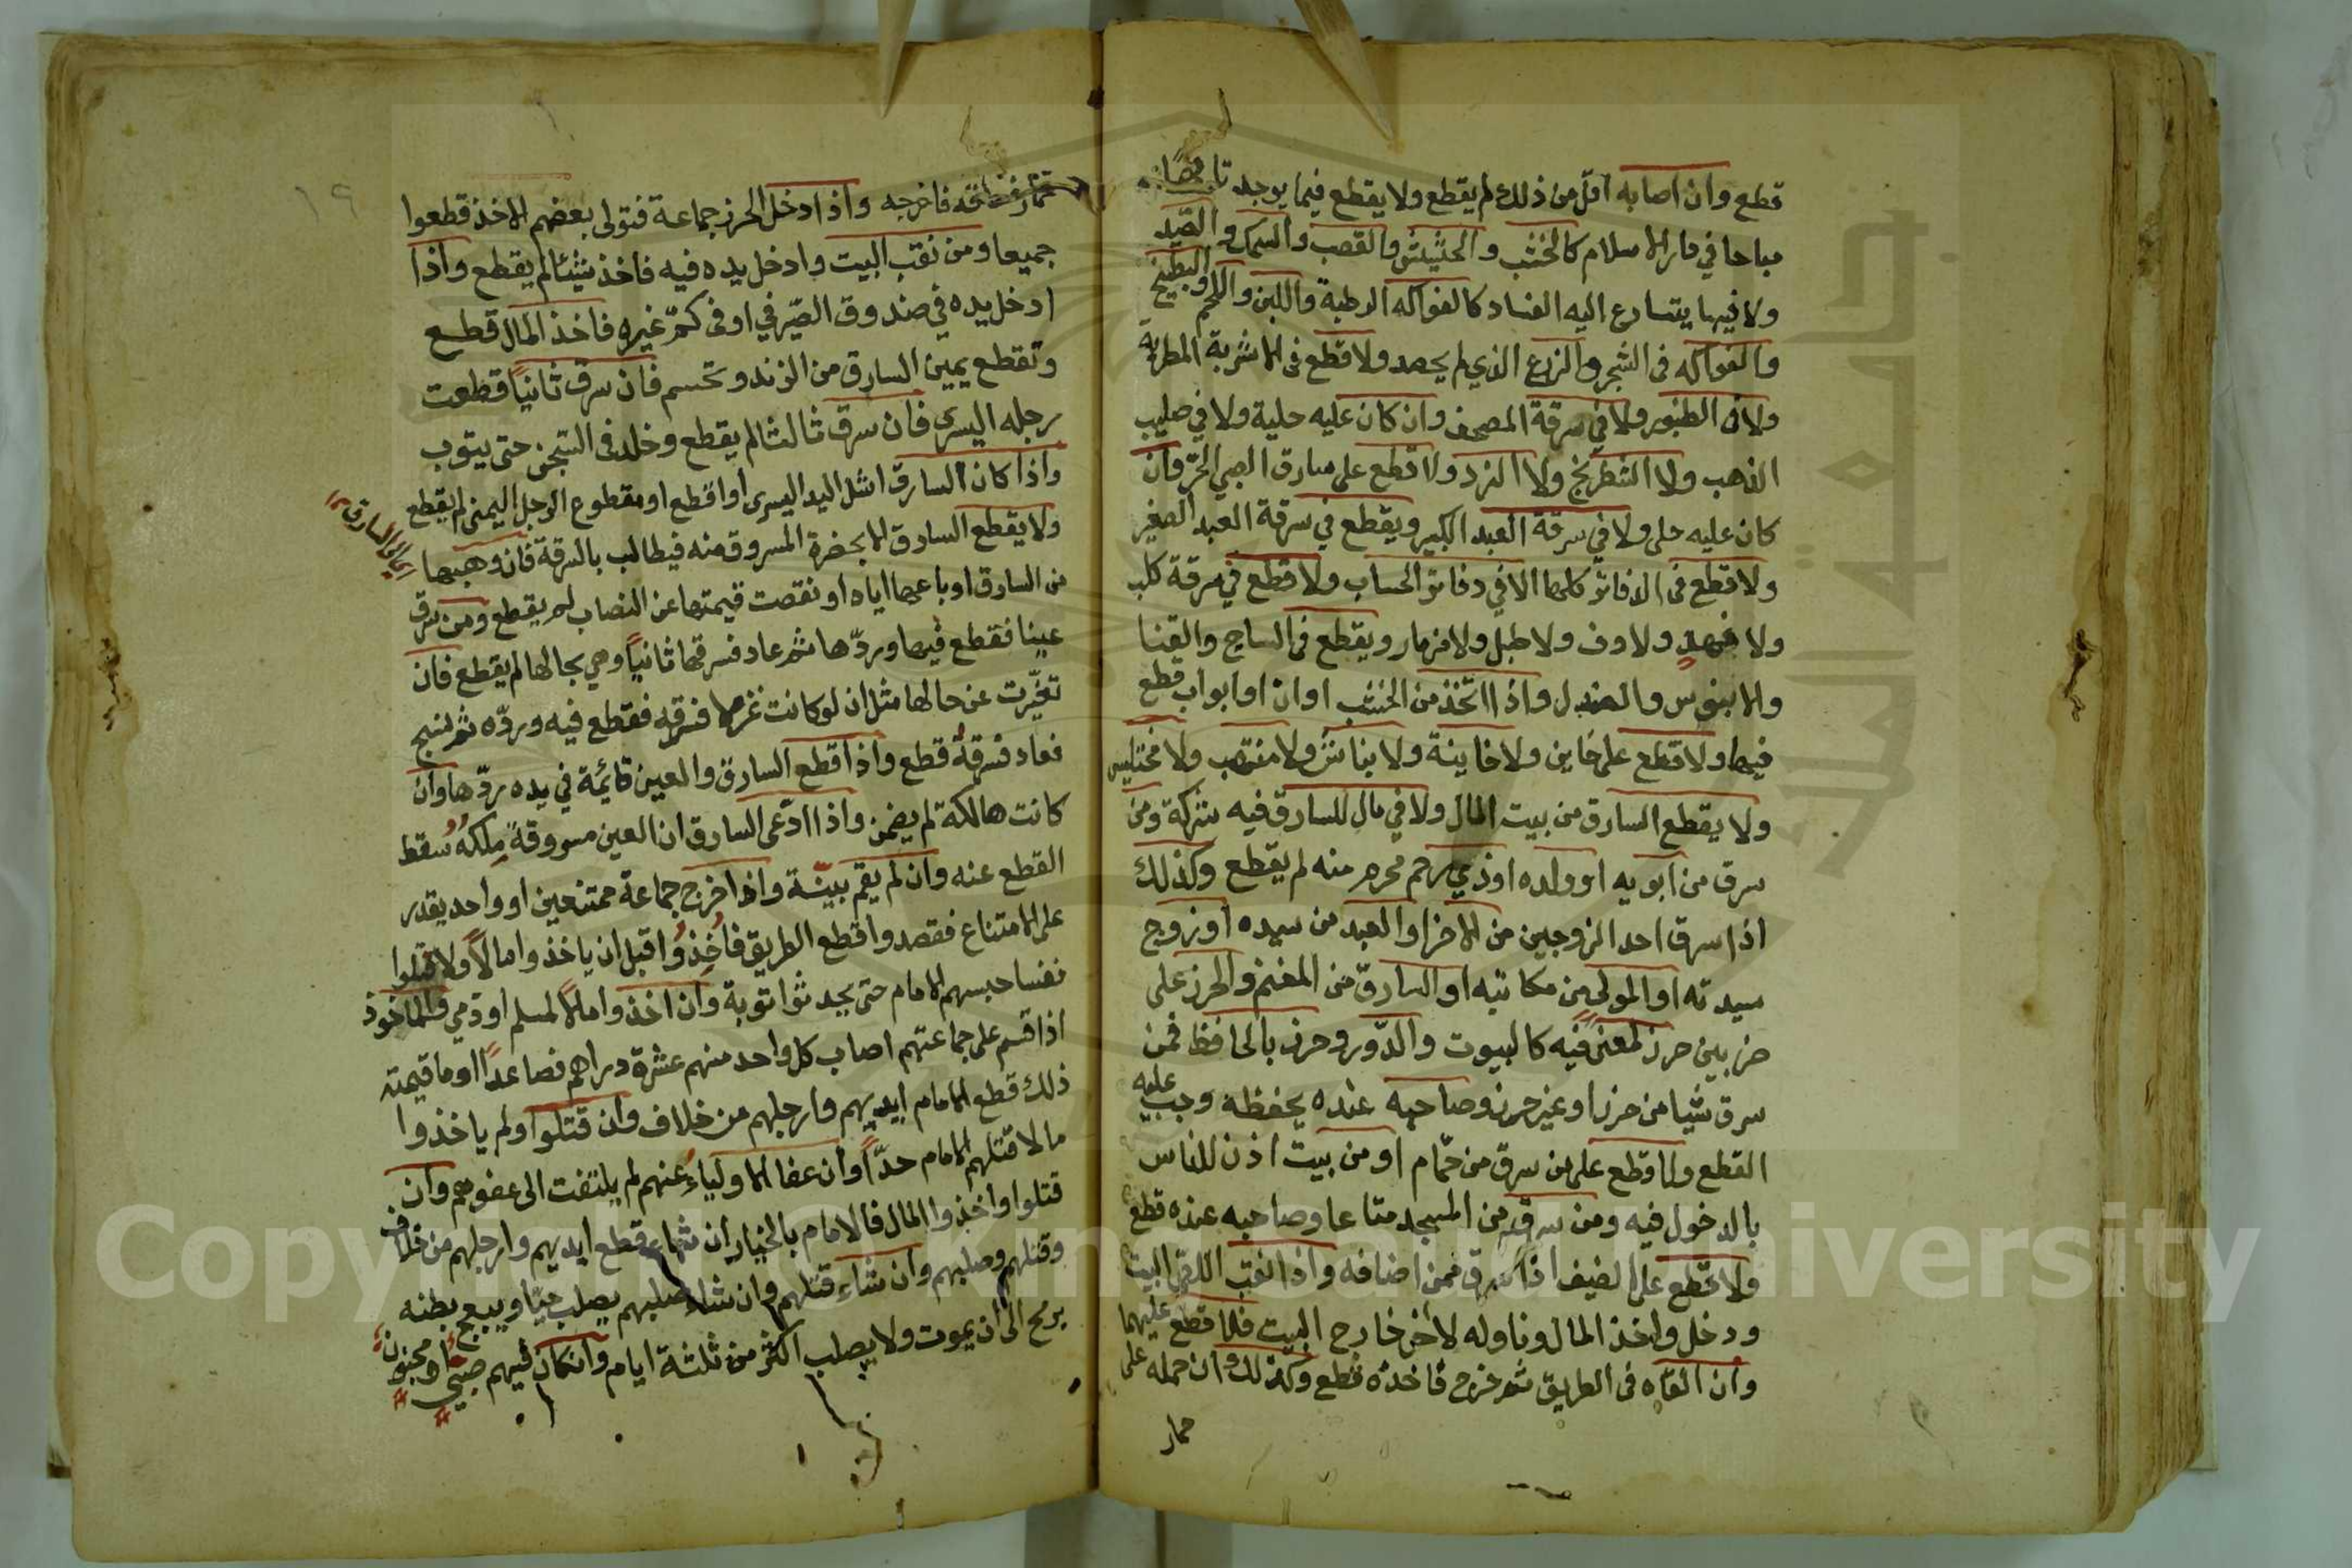 قطع وان اصابه اقل من ذلك لم يقطع ولا يقطع فيما يوجد تافها
مباحا في دار الاسلام كالخشب والحشيش والقصب والسمك والصيد
ولا فيما يتسارع اليه الفساد كالفواكه الرطبة واللبن واللحم والبطيخ
والفواكه في الشجر والزرع الذي لم يحصد ولا قطع في الاشربة المطربة
ولا في الطنبور ولا في سرقة المصحف وان كان عليه حلية ولا في صليب
الذهب ولا الشطرنج ولا النرد ولا قطع على سارق الصبي الحر وان
كان عليه حلى ولا في سرقة العبد الكبير ويقطع في سرقة العبد الصغير
ولا قطع في الدفاتر كلها الا في دفاتر الحساب ولا قطع في سرقة كلب
ولا فهد ولا دف ولا طبل ولا مزمار ويقطع في الساج والقنا
والابنوس والصندل واذا اتخذ من الخشب اوان او ابواب قطع
فيها ولا قطع على خاين ولا خاينة ولا نباش ولا منتهب ولا مختلس
ولا يقطع السارق من بيت المال ولا في مال للسارق فيه شركة ومن
سرق من ابويه او ولده او ذي رحم محرم منه لم يقطع وكذلك
اذا سرق احد الزوجين من الاخر او العبد من سيده او زوج
سيدته او المولى من مكاتبه او السارق من المغنم والحرز على
ضربين حرز لمعنى فيه كالبيوت والدور وحرز بالحافظ فمن
سرق شيا من حرز او غير حرز وصاحبه عنده يحفظه وجب عليه
القطع ولا قطع على من سرق من حمام او من بيت اذن للناس
بالدخول فيه ومن سرق من المسجد متاعا وصاحبه عنده قطع
ولا قطع على الضيف اذا سرق ممن اضافه واذا نقب اللص البيت
ودخل واخذ المال وناوله لاخر خارج البيت فلا قطع عليهما
وان القاه في الطريق ثم خرج فاخذه قطع وكذلك ان حمله على
حمار
١٩
حمار فساقه فاخرجه واذا دخل الحرز جماعة فتولى بعضهم الاخذ قطعوا
جميعا ومن نقب البيت وادخل يده فيه فاخذ شيئا لم يقطع واذا
ادخل يده في صندوق الصيرفي او في كم غيره فاخذ المال قطع
وتقطع يمين السارق من الزند وتحسم فان سرق ثانيا قطعت
رجله اليسرى فان سرق ثالثا لم يقطع وخلد في السجن حتى يتوب
واذا كان السارق اشل اليد اليسرى او اقطع او مقطوع الرجل اليمنى لم يقطع
ولا يقطع السارق الا بحضرة المسروق منه فيطالب بالسرقة فان وهبها
من السارق او باعها اياه او نقصت قيمتها عن النصاب لم يقطع ومن سرق
عينا فقطع فيها وردها ثم عاد فسرقها ثانيا وهي بحالها لم يقطع فان
تغيرت عن حالها مثل ان لو كانت غزلا فسرقه فقطع فيه ورده ثم نسج
فعاد فسرقه قطع واذا قطع السارق والعين قائمة في يده ردها وان
كانت هالكة لم يضمن واذا ادعى السارق ان العين مسروقة ملكه سقط
القطع عنه وان لم يقم بينة واذا خرج جماعة ممتنعين او واحد يقدر
على الامتناع فقصدوا قطع الطريق فاخذوا قبل ان ياخذوا مالا ولا قتلوا
نفسا حبسهم الامام حتى يحدثوا توبة وان اخذوا مالا لمسلم او ذمي والماخوذ
اذا قسم على جماعتهم اصاب كل واحد منهم عشرة دراهم فصاعدا او ما قيمته
ذلك قطع الامام ايديهم وارجلهم من خلاف وان قتلوا ولم ياخذوا
مالا قتلهم الامام حدا وان عفا الاولياء عنهم لم يلتفت الى عفوهم وان
قتلوا واخذوا المال فالامام بالخيار ان شاء قطع ايديهم وارجلهم من خلاف
وقتلهم وصلبهم وان شاء قتلهم وان شاء صلبهم يصلب حيا ويبعج بطنه
برمح الى ان يموت ولا يصلب اكثر من ثلثة ايام وانكان فيهم صبي او مجنون